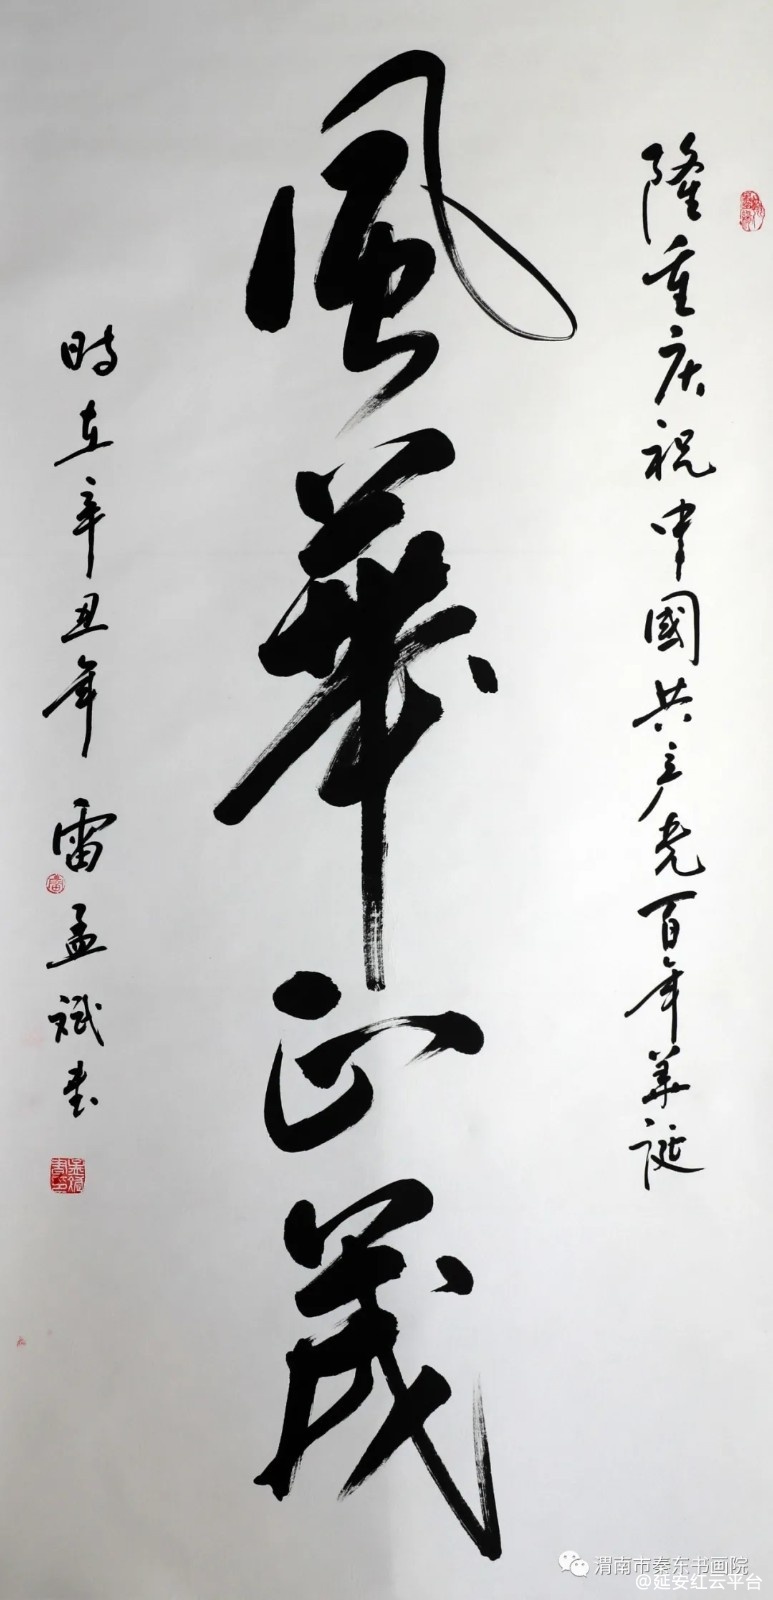 隆重庆祝中國共产党百年华诞
風華正茂
時在辛丑年雷孟斌书
渭南市秦东书画院
@延安红云平台